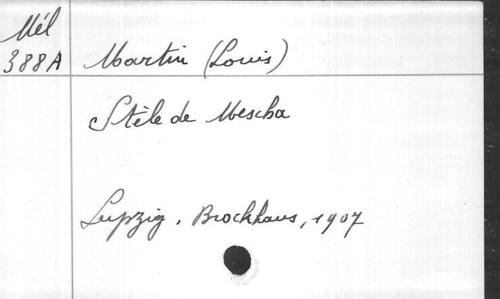 Mél
388A Martin (Louis)
Stèle de Mescha
Leipzig, Brockhaus, 1907